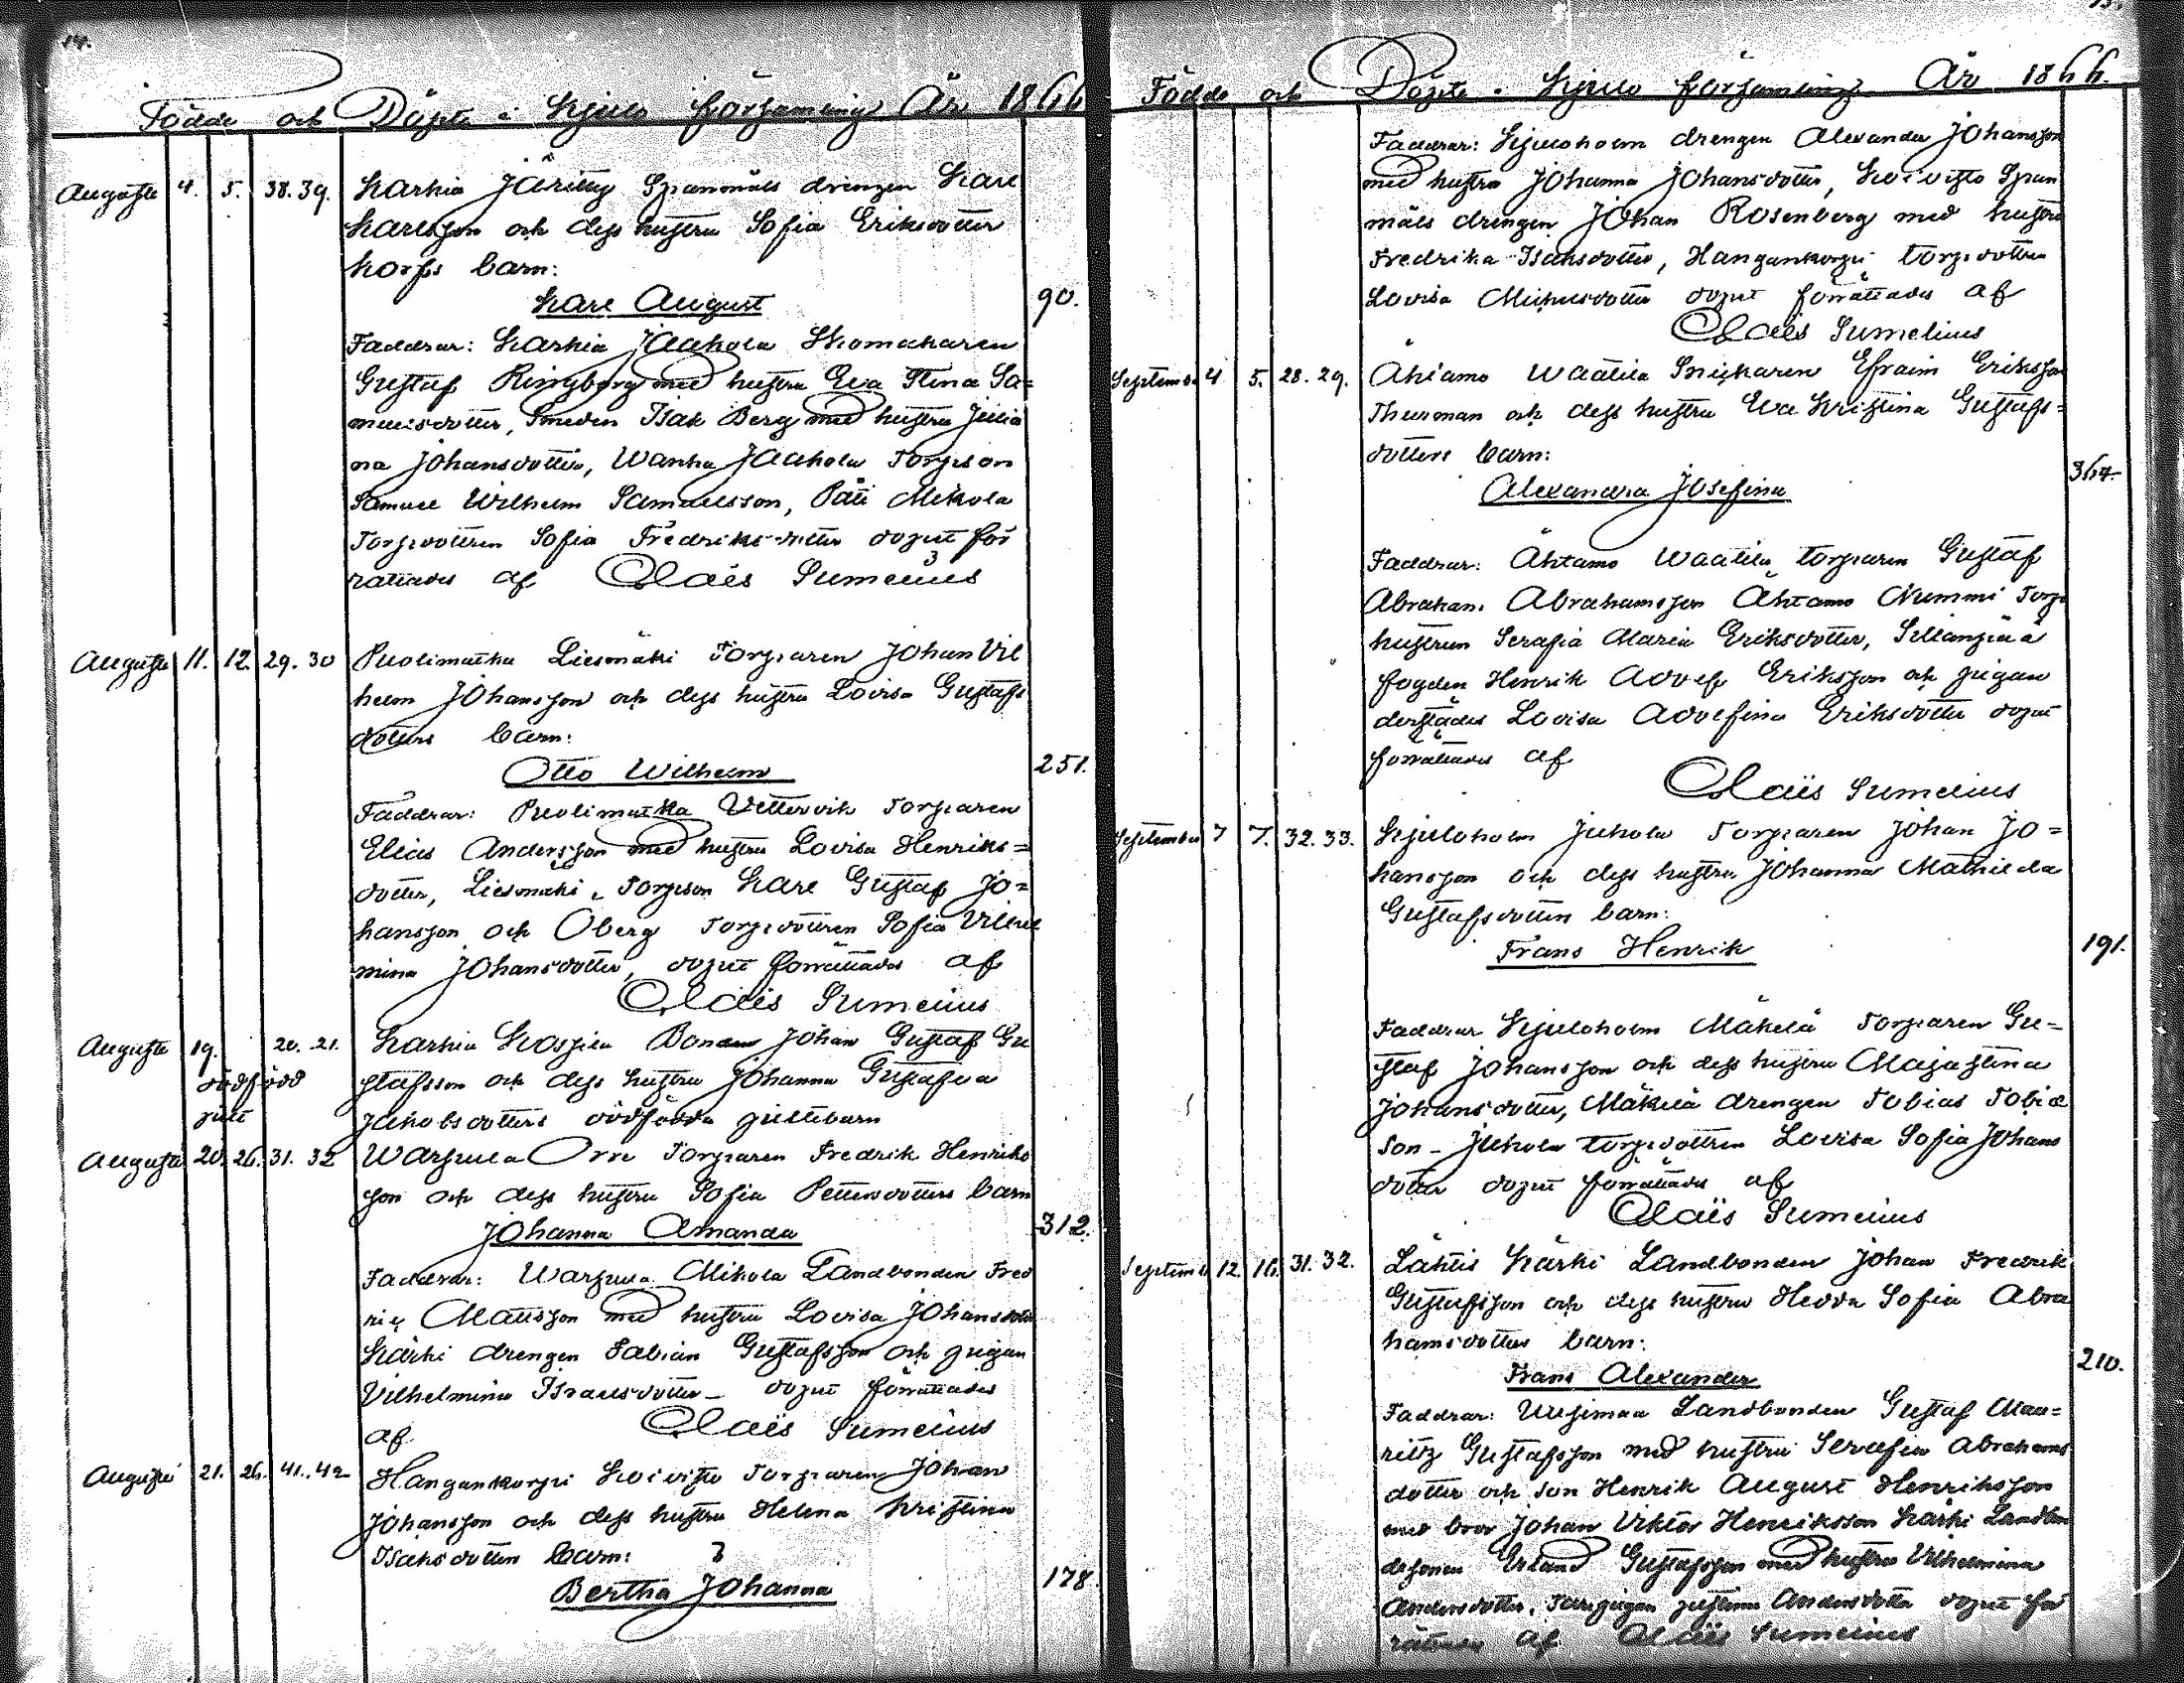 14.
Födde och Döpte i Kjulo församling År 1866
Augusti 4. 5. 38. 39. Karhia Järitty Spanmåls drengen Karl
Karlsson och dess hustru Sofia Eriksdotter
Korfs barn:
Karl August 90.
Faddrar: Karhia Jaakola Skomakaren
Gustaf Ringberg med hustru Eva Stina Sa=
muelsdotter, Smeden Isak Berg med hustru Julia
na Johansdotter, Wanha Jaakola Torpson
Samuel Wilhelm Samuelsson, Päti Mikola
Torpdottren Sofia Fredriksdotter dopet för
rättades af Claës Sumelius
Augusti 11. 12. 29. 30 Puolimatka Liesmäki Torparen Johan Vil
helm Johansson och dess hustru Lovisa Gustafs
dotters barn:
Otto Wilhelm 251.
Faddrar: Puolimatka Vettervik Torparen
Elias Andersson med hustru Lovisa Henriks=
dotter, Liesmäki Torpson Karl Gustaf Jo=
hansson och Öberg Torpdottren Sofia Vilhel
mina Johansdotter, dopet förrättades af
Claës Sumelius
Augusti 19. 20. 21. Karhia Kospila Bonden Johan Gustaf Gu
dödfödd stafsson och dess hustru Johanna Gustafva
Jakobsdotters dödfödda gillebarn
Augusti 20. 26. 31. 32 Warpula Orri Torparen Fredrik Henriks
son och dess hustru Sofia Pettersdotters barn
Johanna Amanda 312.
Faddrar: Warpula Mikola Landbonden Fred
ric Mattsson med hustru Lovisa Johansdotter
Kärki drengen Fabian Gustafsson och pigan
Vilhelmina Israelsdotter - dopet förrättades
af Claës Sumelius
Augusti 21. 26. 41. 42 Hangankorpi Koivisto Torparen Johan
Johansson och dess hustru Helena Kristina
Isaksdotters barn:
Bertha Johanna 178.
Födde och Döpte i Kjulo församling År 1866.
Faddrar: Kjuloholm drengen Alexander Johansson
med hustru Johanna Johansdotter, Koivisto Span
måls drengen Johan Rosenberg med hustru
Fredrika Isaksdotter, Hangankorpi torpdottren
Lovisa Michelsdotter dopet förrättades af
Claës Sumelius
September 4 5. 28. 29. Ahtamo Waatila Snickaren Efraim Eriksson
Thurman och dess hustru Eva Kristina Gustafs=
dotters barn:
Alexandra Josefina 364.
Faddrar: Ahtamo Waatila torparen Gustaf
Abraham Abrahamsson Ahtamo Nummi Torp
hustrun Serafia Maria Eriksdotter, Sillanpää
fogden Henrik Adolf Eriksson och pigan
derstädes Lovisa Adolfina Eriksdotter dopet
förrättades af
Claës Sumelius
September 7 7. 32. 33. Kjuloholm Juhola Torparen Johan Jo=
hansson och dess hustru Johanna Mathilda
Gustafsdotters barn:
Frans Henrik 191.
Faddrar Kjuloholm Mäkelä Torparen Gu=
staf Johansson och dess hustru Majastina
Johansdotter, Mäkelä drengen Tobias Tobia
son - Juhola torpdottren Lovisa Sofia Johans
dotter dopet förrättades af
Claës Sumelius
Septem 12. 16. 31. 32. Lähtis Kärki Landbonden Johan Fredrik
Gustafsson och dess hustru Hedda Sofia Abra
hamsdotters barn:
Frans Alexander 210.
Faddrar: Uusimaa Landbonden Gustaf Mau=
ritz Gustafsson med hustru Serafia Abrahams
dotter och son Henrik August Henriksson
med bror Johan Viktor Henriksson Kärki Landbon
desonen Erland Gustafsson med hustru Vilhelmina
Andersdotter, Justina Andersdotter dopet för
rättades af Claës Sumelius